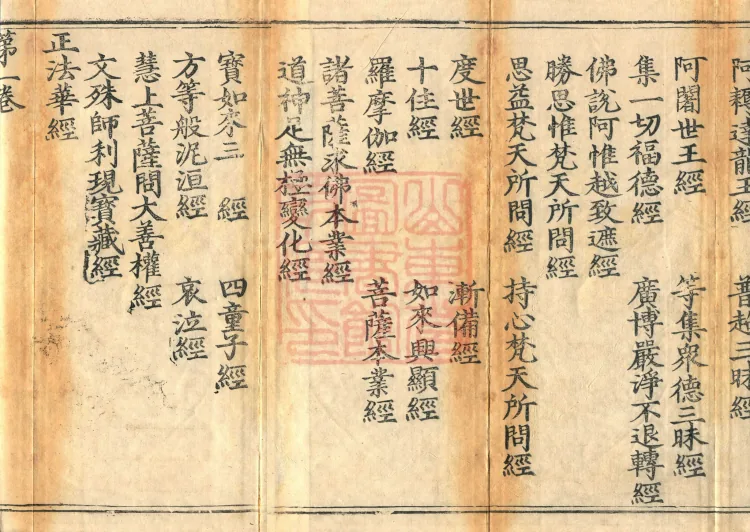 阿耨達龍王經 普超三昧經
阿闍世王經 等集衆德三昧經
集一切福德經 廣博嚴淨不退轉經
佛說阿惟越致遮經
勝思惟梵天所問經
思益梵天所問經 持心梵天所問經
度世經 漸備經
十住經 如來興顯經
羅摩伽經 菩薩本業經
諸菩薩求佛本業經
道神足無極變化經
寶如來三 經 四童子經
方等般泥洹經 哀泣經
慧上菩薩問大善權經
文殊師利現寶藏經
正法華經
第一卷